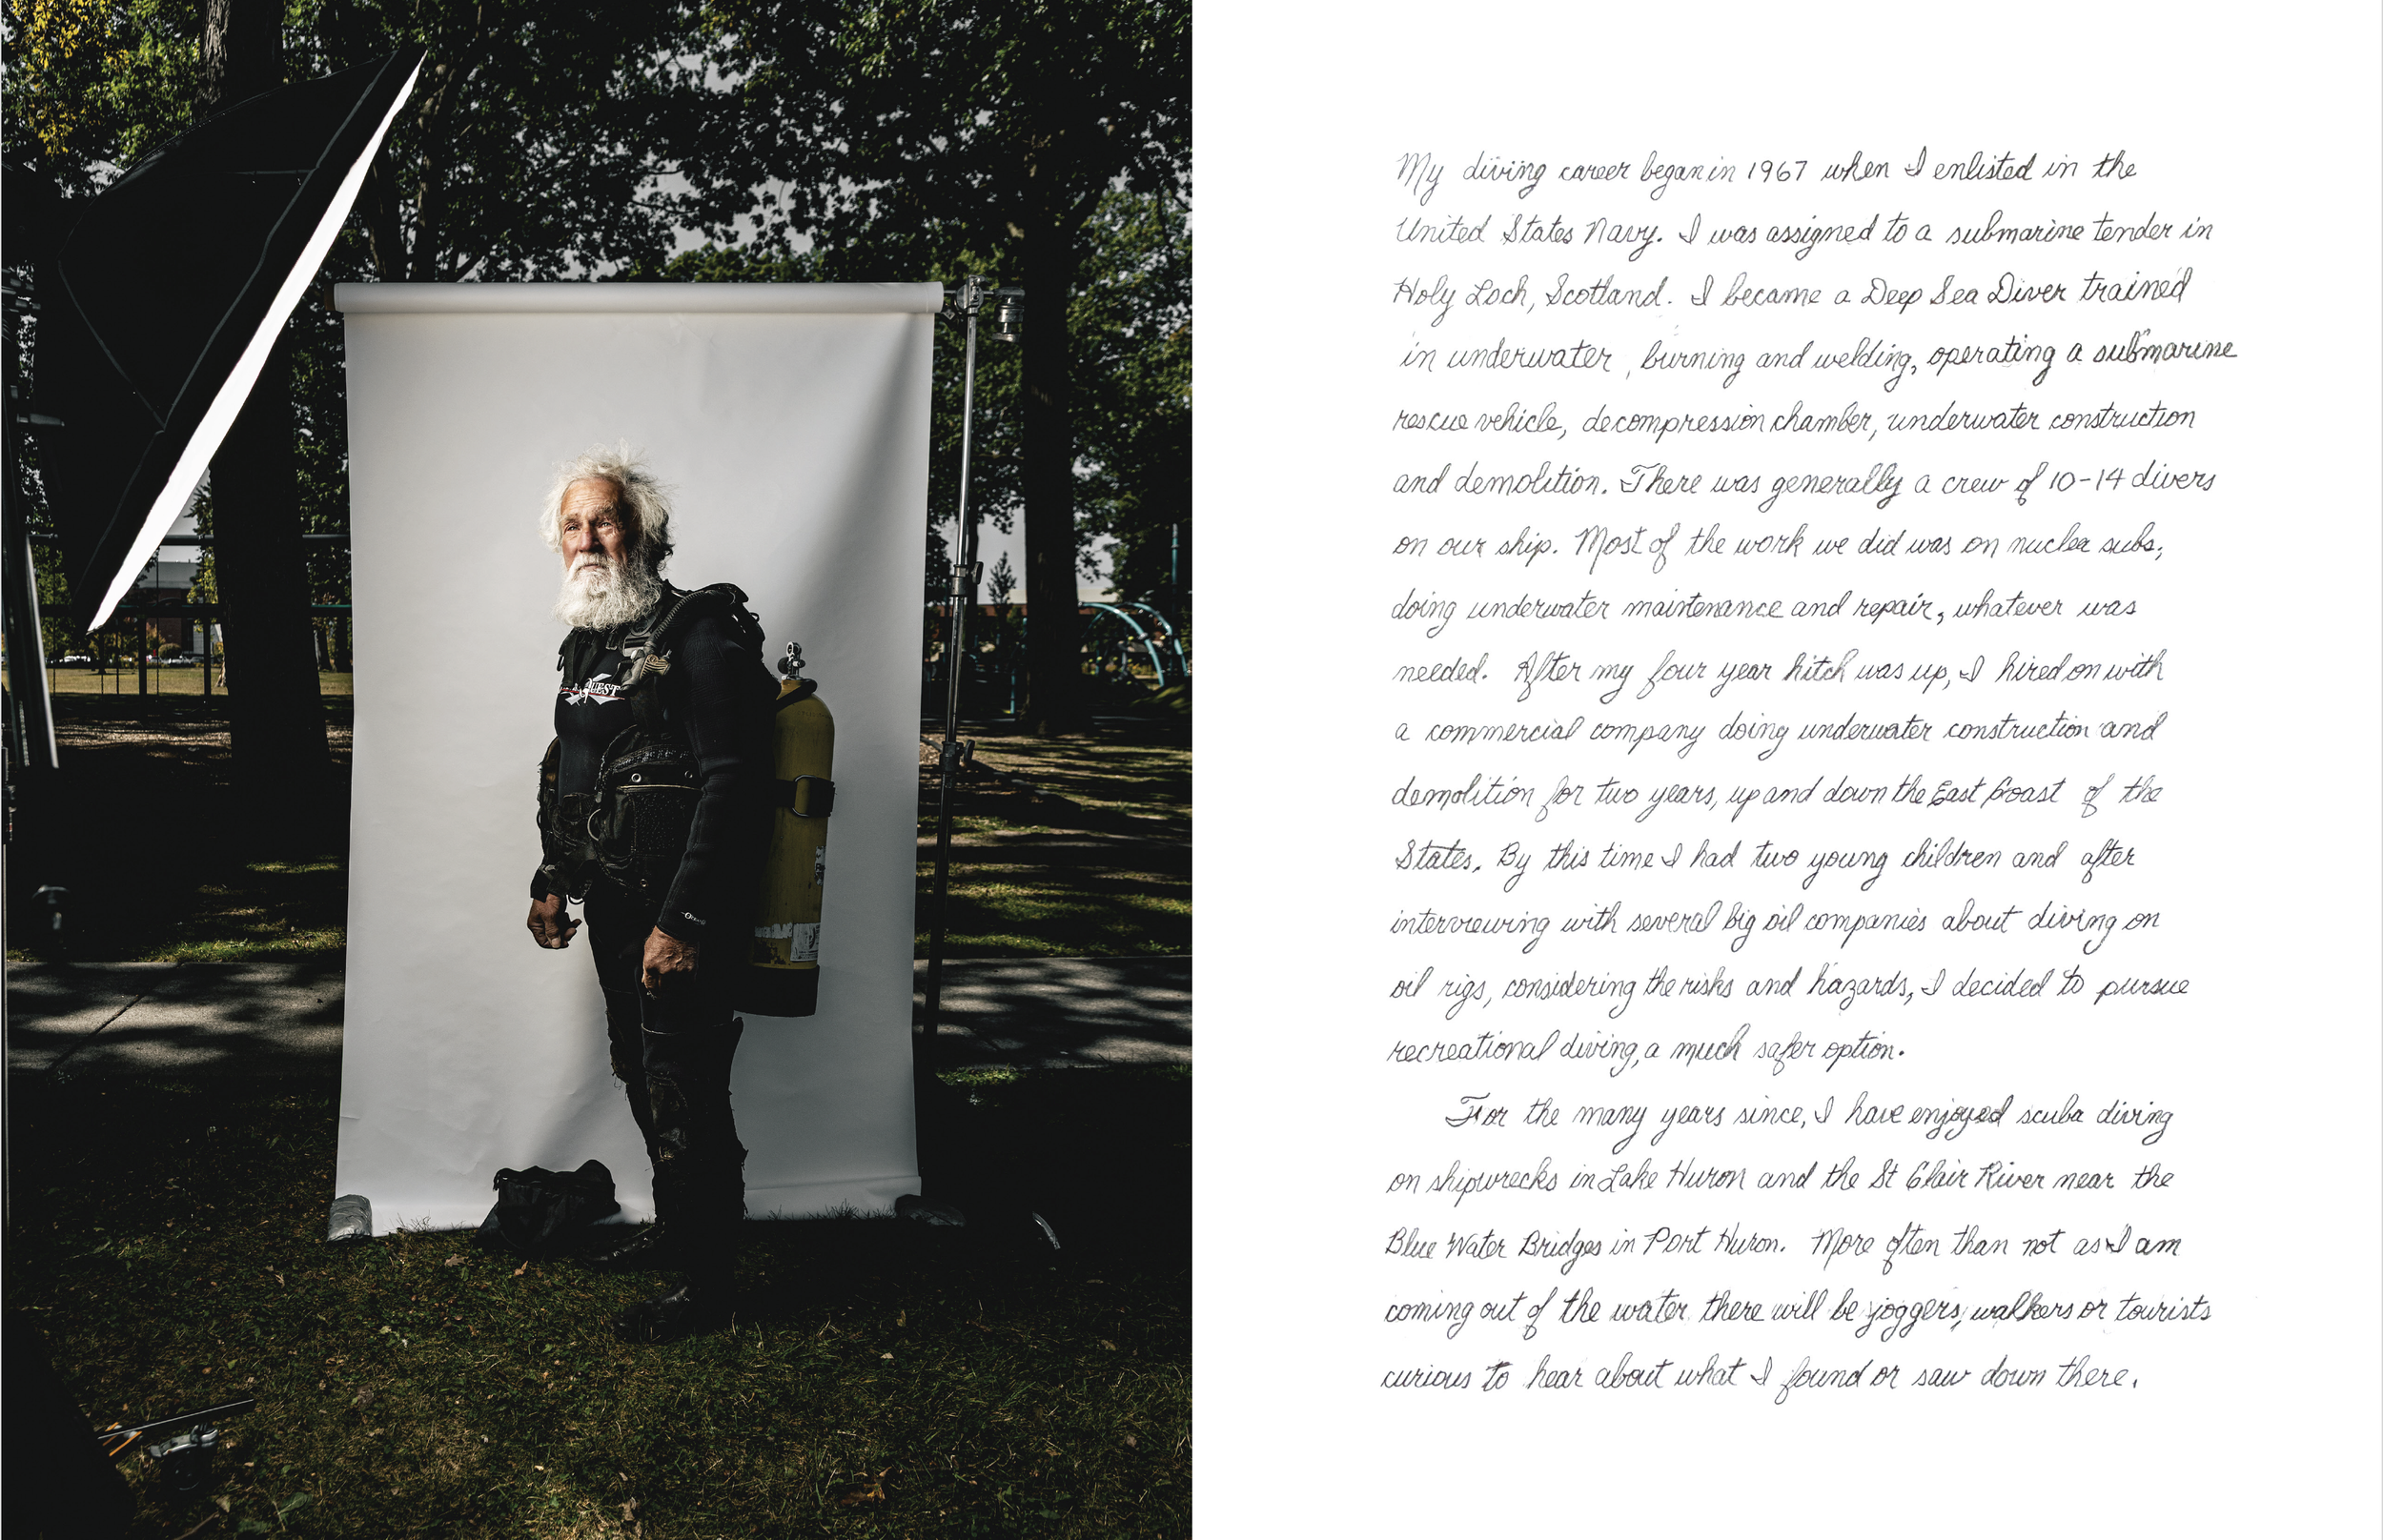 QUEST
My diving career began in 1967 when I enlisted in the
United States Navy. I was assigned to a submarine tender in
Holy Loch, Scotland. I became a Deep Sea Diver trained
in underwater, burning and welding, operating a submarine
rescue vehicle, decompression chamber, underwater construction
and demolition. There was generally a crew of 10-14 divers
on our ship. Most of the work we did was on nuclea subs,
doing underwater maintenance and repair, whatever was
needed. After my four year hitch was up, I hired on with
a commercial company doing underwater construction and
demolition for two years, up and down the East Coast of the
States. By this time I had two young children and after
interviewing with several big oil companies about diving on
oil rigs, considering the risks and hazards, I decided to pursue
recreational diving, a much safer option.
For the many years since, I have enjoyed scuba diving
on shipwrecks in Lake Huron and the St Clair River near the
Blue Water Bridges in Port Huron. More often than not as I am
coming out of the water there will be joggers, walkers or tourists
curious to hear about what I found or saw down there.